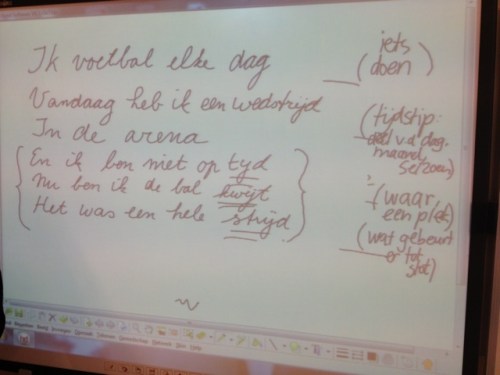 Ik voetbal elke dag
Vandaag heb ik een wedstrijd
In de arena
En ik ben niet op tyd
Nu ben ik de bal kwijt
Het was een hele strijd
iets
(doen)
(tijdstip:
deel v.d. dag.
maand,
seizoen)
(waar,
een plek)
(wat gebeurt
er tot
slot)